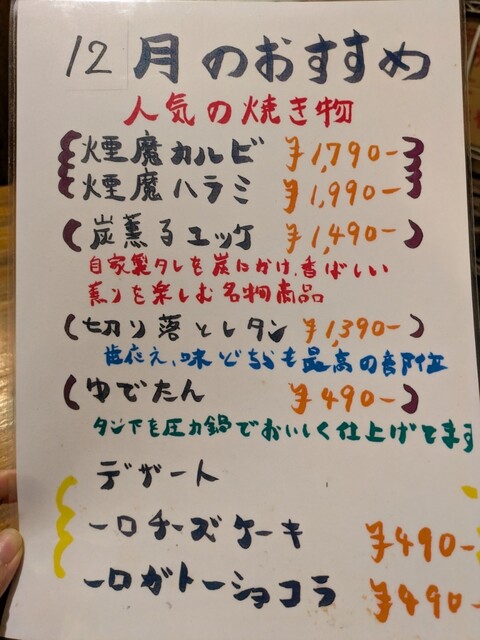 12月のおすすめ
人気の焼き物
煙魔カルビ ¥1,790-
煙魔ハラミ ¥1,990-
炭薫るユッケ ¥1,490-
自家製タレを炭にかけ、香ばしい
薫りを楽しむ名物商品
切り落としタン ¥1,390-
歯応え、味どちらも最高の部位
ゆでたん ¥490-
タン下を圧力鍋でおいしく仕上げてます
デザート
一口チーズケーキ ¥490-
一口ガトーショコラ ¥490-